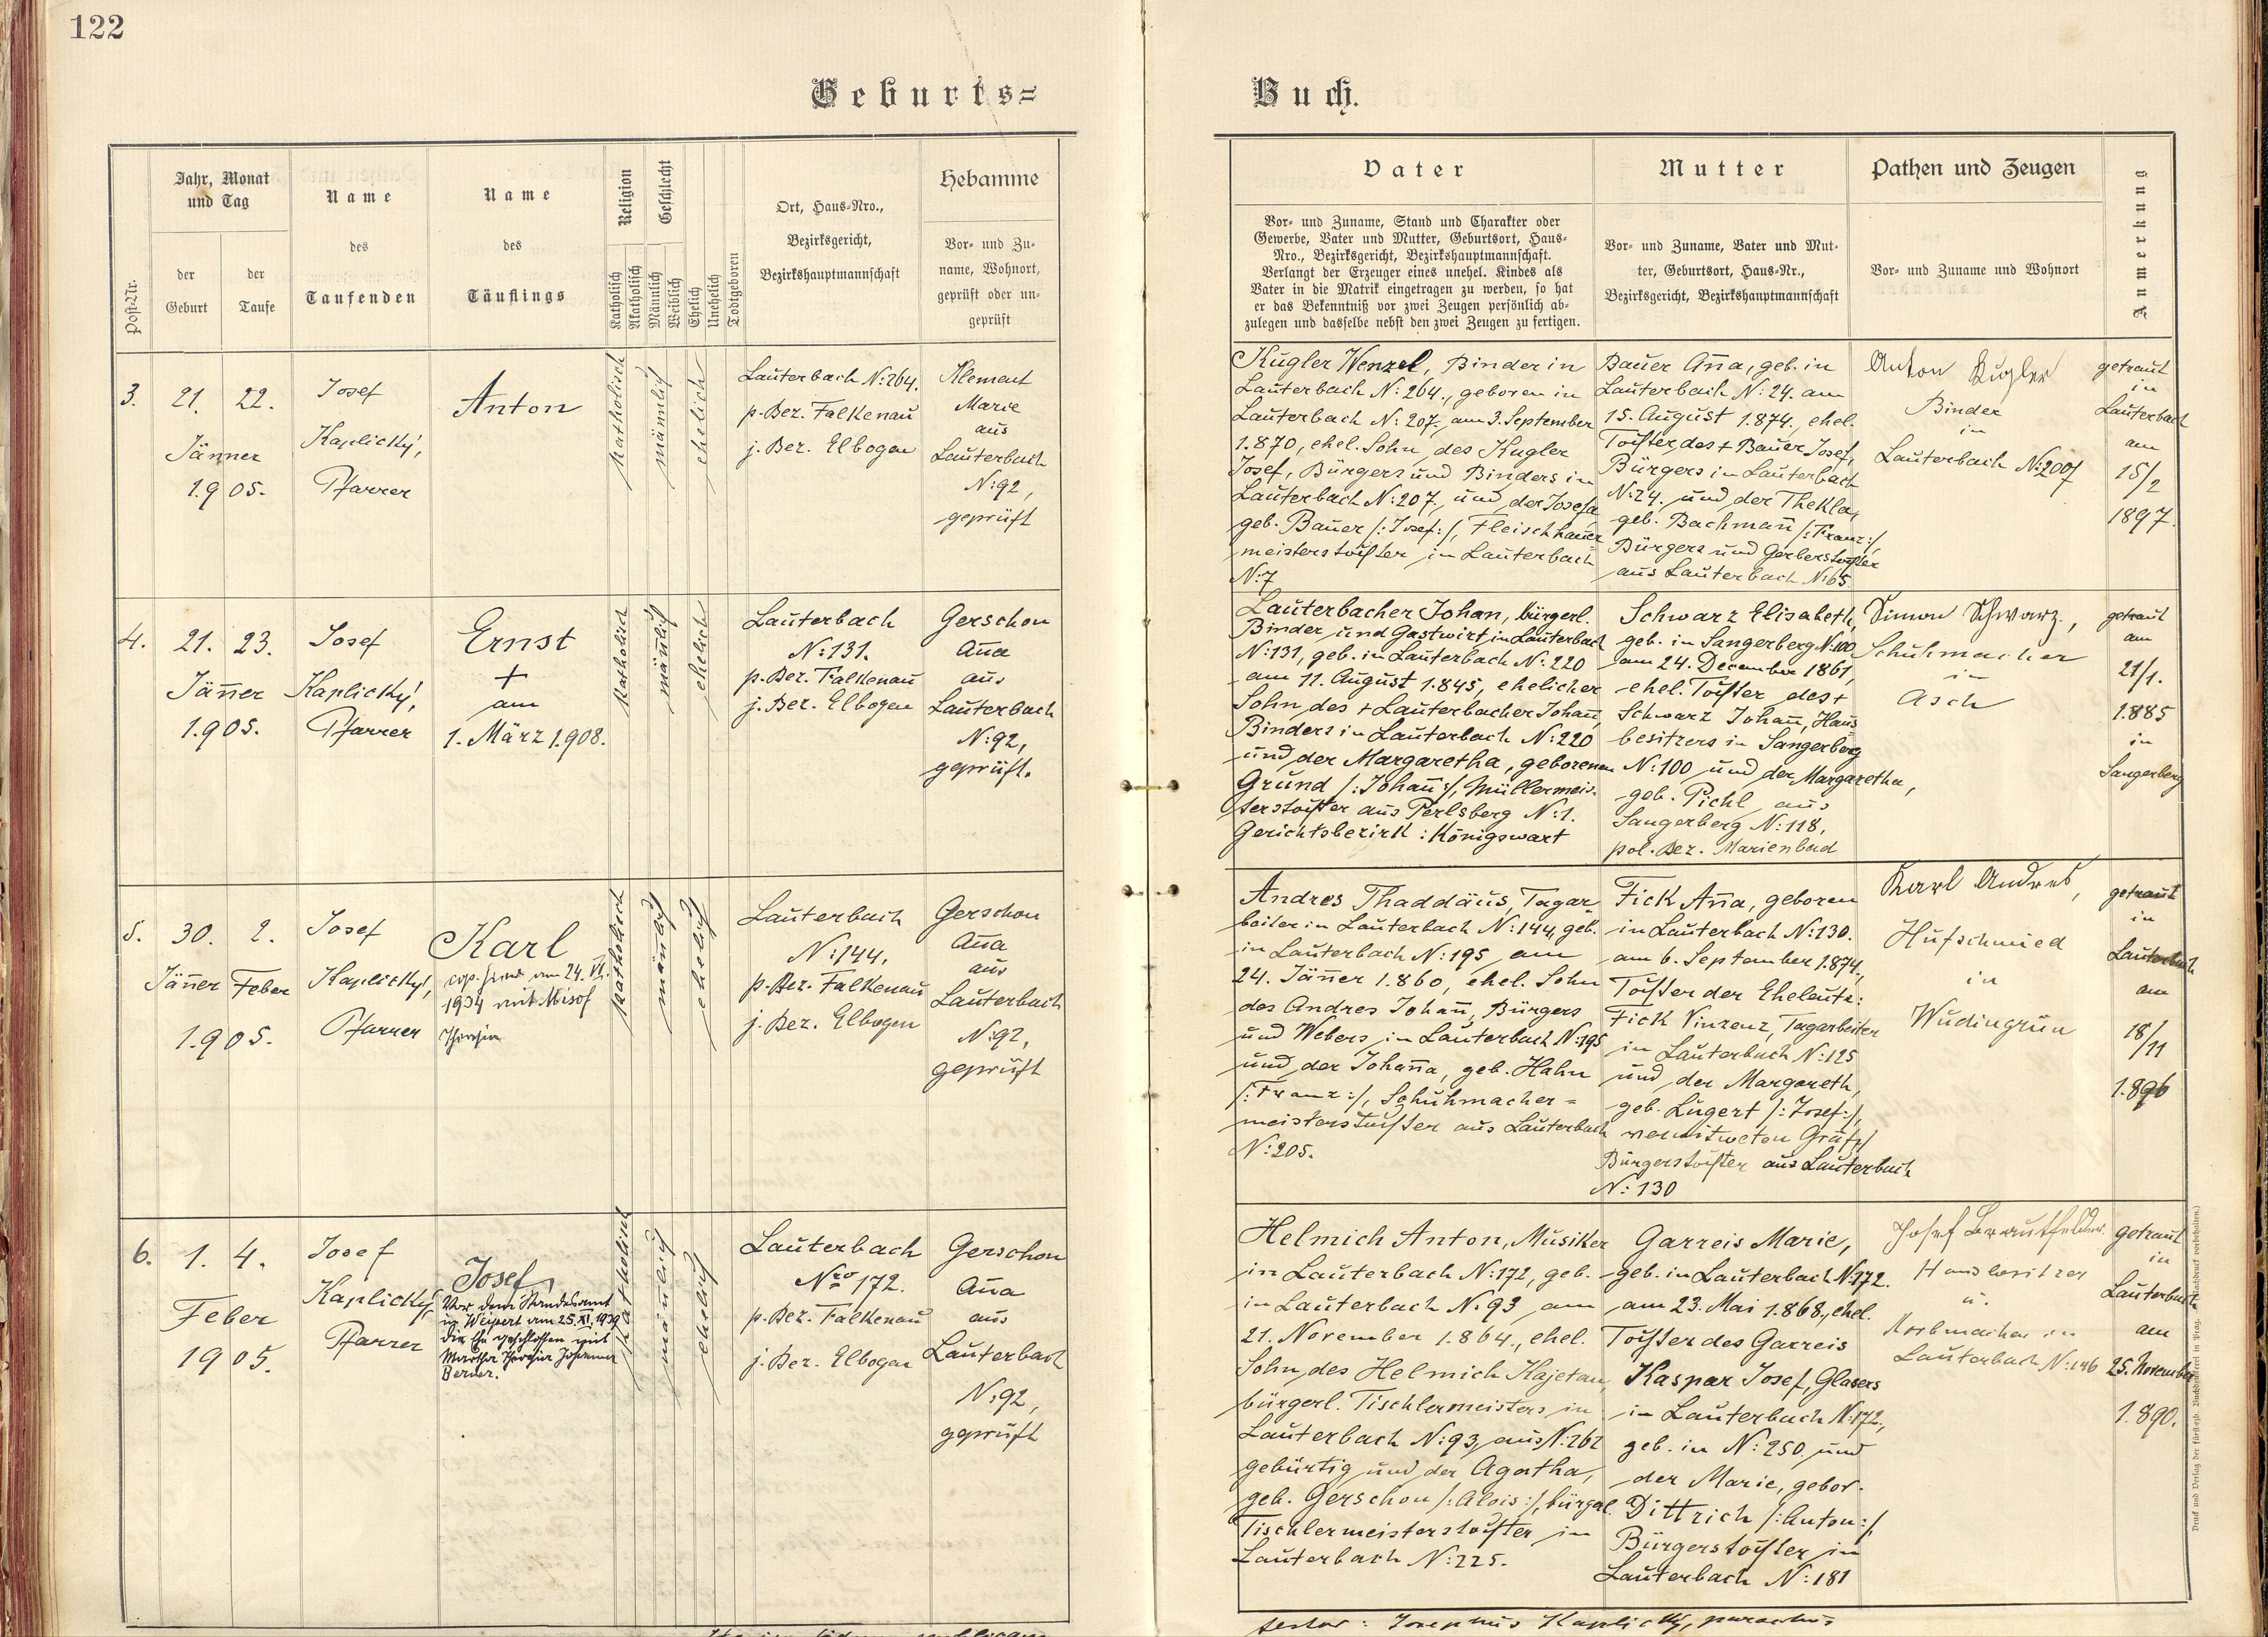 122
Geburts=
Buch.
Post-Nr.
Jahr, Monat
und Tag
der
Geburt
der
Taufe
Name
des
Taufenden
Name
des
Täuflings
Religion
Katholisch
Akatholisch
Geschlecht
Männlich
Weiblich
Ehelich
Unehelich
Todtgeboren
Ort, Haus-Nro.,
Bezirksgericht,
Bezirkshauptmannschaft
Hebamme
Vor- und Zu-
name, Wohnort,
geprüft oder un-
geprüft
Vater
Vor- und Zuname, Stand und Charakter oder
Gewerbe, Vater und Mutter, Geburtsort, Haus-
Nro., Bezirksgericht, Bezirkshauptmannschaft.
Verlangt der Erzeuger eines unehel. Kindes als
Vater in die Matrik eingetragen zu werden, so hat
er das Bekenntniß vor zwei Zeugen persönlich ab-
zulegen und dasselbe nebst den zwei Zeugen zu fertigen.
Mutter
Vor- und Zuname, Vater und Mut-
ter, Geburtsort, Haus-Nr.,
Bezirksgericht, Bezirkshauptmannschaft
Pathen und Zeugen
Vor- und Zuname und Wohnort
Anmerkung
3.
21. 22.
Jänner
1905.
Josef
Kaplický,
Pfarrer
Anton
katholisch
männlich
ehelich
Lauterbach N:264.
p. Bez. Falkenau
j. Bez. Elbogen
Klement
Marie
aus
Lauterbach
N:92,
geprüft
Kugler Wenzel, Binder in
Lauterbach N:264., geboren in
Lauterbach N:207. am 3. September
1.870, ehel. Sohn des Kugler
Josef, Bürgers und Binders in
Lauterbach N:207. und der Josefa
geb. Bauer /:Josef:/, Fleischhauer
meisterstochter in Lauterbach
N:7
Bauer Anna, geb. in
Lauterbach N:24. am
15. August 1.874., ehel.
Tochter des + Bauer Josef,
Bürgers in Lauterbach
N:24. und der Thekla,
geb. Bachmann /:Franz:/,
Bürgers und Gerberstochter
aus Lauterbach N:65.
Anton Kugler
Binder
in
Lauterbach N:207
getraut
in
Lauterbach
am
15/2
1897.
4.
21. 23.
Jänner
1.905.
Josef
Kaplický,
Pfarrer
Ernst
+
am
1. März 1.908.
katholisch
männlich
ehelich
Lauterbach
N:131.
p. Bez. Falkenau
j. Bez. Elbogen
Gerschon
Anna
aus
Lauterbach
N:92,
geprüft.
Lauterbacher Johan, bürgerl.
Binder und Gastwirt in Lauterbach
N:131, geb. in Lauterbach N:220
am 11. August 1.845, ehelicher
Sohn des + Lauterbacher Johann,
Binders in Lauterbach N:220
und der Margaretha, geborenen
Grund /:Johann:/, Müllermeis-
terstochter aus Perlsberg N:1.
Gerichtsbezirk: Königswart
Schwarz Elisabeth,
geb. in Sangerberg N:100
am 24. December 1861,
ehel. Tochter des +
Schwarz Johann, Haus
besitzers in Sangerberg
N:100 und der Margaretha,
geb. Pichl aus
Sangerberg N:118,
pol. Bez. Marienbad
Simon Schwarz,
Schuhmacher
in
Asch
getraut
am
21/1.
1.885
in
Sangerberg
5.
30. 2.
Jänner Feber
1.905.
Josef
Kaplický,
Pfarrer
Karl
1934 mit Misof
Theresia
katholisch
männlich
ehelich
Lauterbach
N:144.
p. Bez. Falkenau
j. Bez. Elbogen
Gerschon
Anna
aus
Lauterbach
N:92,
geprüft
Andres Thaddäus, Tagar-
beiter in Lauterbach N:144, geb.
in Lauterbach N:195 am
24. Jänner 1.860, ehel. Sohn
des Andres Johann, Bürgers
und Webers in Lauterbach N:195
und der Johanna, geb. Hahn
/:Franz:/, Schuhmacher=
meisterstochter aus Lauterbach
N:205.
Fick Anna, geboren
in Lauterbach N:130.
am 6. September 1.874,
Tochter der Eheleute:
Fick Vinzenz, Tagarbeiter
in Lauterbach N:125
und der Margareth,
geb. Lugert /:Josef:/,
verwitweten Gräf,
Bürgerstochter aus Lauterbach
N:130
Karl Andres,
Hufschmied
in
Wudingrün
getraut
in
Lauterbach
am
18/11
1.896
6.
1. 4.
Feber
1905.
Josef
Kaplický,
Pfarrer
Josef
Vor dem Standesamt
in Weipert am 25.XI.1939
die Ehe geschlossen mit
Martha Theresia Johanna
Berner.
katholisch
männlich
ehelich
Lauterbach
Nro 172.
p. Bez. Falkenau
j. Bez. Elbogen
Gerschon
Anna
aus
Lauterbach
N:92,
geprüft
Helmich Anton, Musiker
in Lauterbach N:172, geb.
in Lauterbach N:93 am
21. November 1.864., ehel.
Sohn des Helmich Kajetan,
bürgerl. Tischlermeisters in
Lauterbach N:93, aus N:262
gebürtig und der Agatha,
geb. Gerschon /:Alois:/, bürgerl.
Tischlermeisterstochter in
Lauterbach N:225.
Garreis Marie,
geb. in Lauterbach N:172.
am 23. Mai 1.868., ehel.
Tochter des Garreis
Kaspar Josef, Glasers
in Lauterbach N:172,
geb. in N:250 und
der Marie, gebor.
Dittrich /:Anton:/,
Bürgerstochter in
Lauterbach N:181
Josef Brautfelder
Hausbesitzer
u.
Korbmacher in
Lauterbach N:146
getraut
in
Lauterbach
am
25. November
1.890.
testor: Josephus Kaplický, parochus